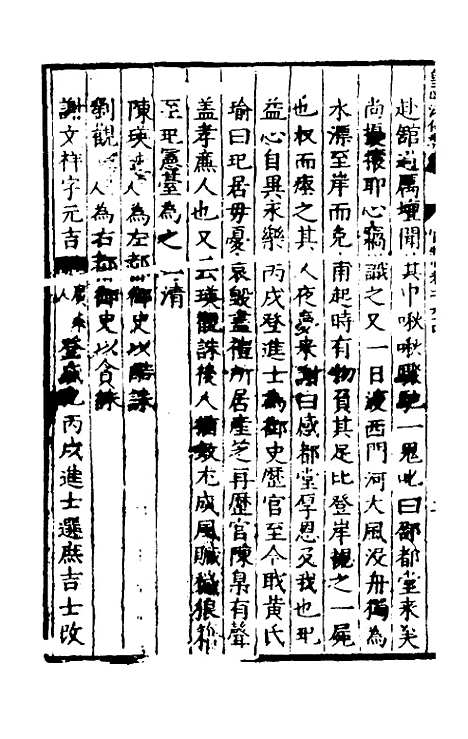 赴舘過厲壇聞其中啾啾驟馳一鬼叱曰邵都堂來矣
尚擾攘耶心竊識之又一日渡西門河大風没舟獨為
水漂至岸而免甫起時有物負其足比登岸視之一屍
也权而瘞之其人夜夢來謝曰感都堂厚恩及我也玘
益心自異永樂丙戌登進士為御史歷官至今職黄氏
瑜曰玘居母憂哀毀盡禮所居産芝再歷官陳臬有聲
盖孝廉人也又云瑛觀誅後人猶效尤成風贓穢狼籍
至玘憲臺為之一清
陳瑛 人為左都御史以酷誅
劉觀 人為右都御史以貪誅
謝文祥字元吉 人 登成化丙戌進士選庶吉士改